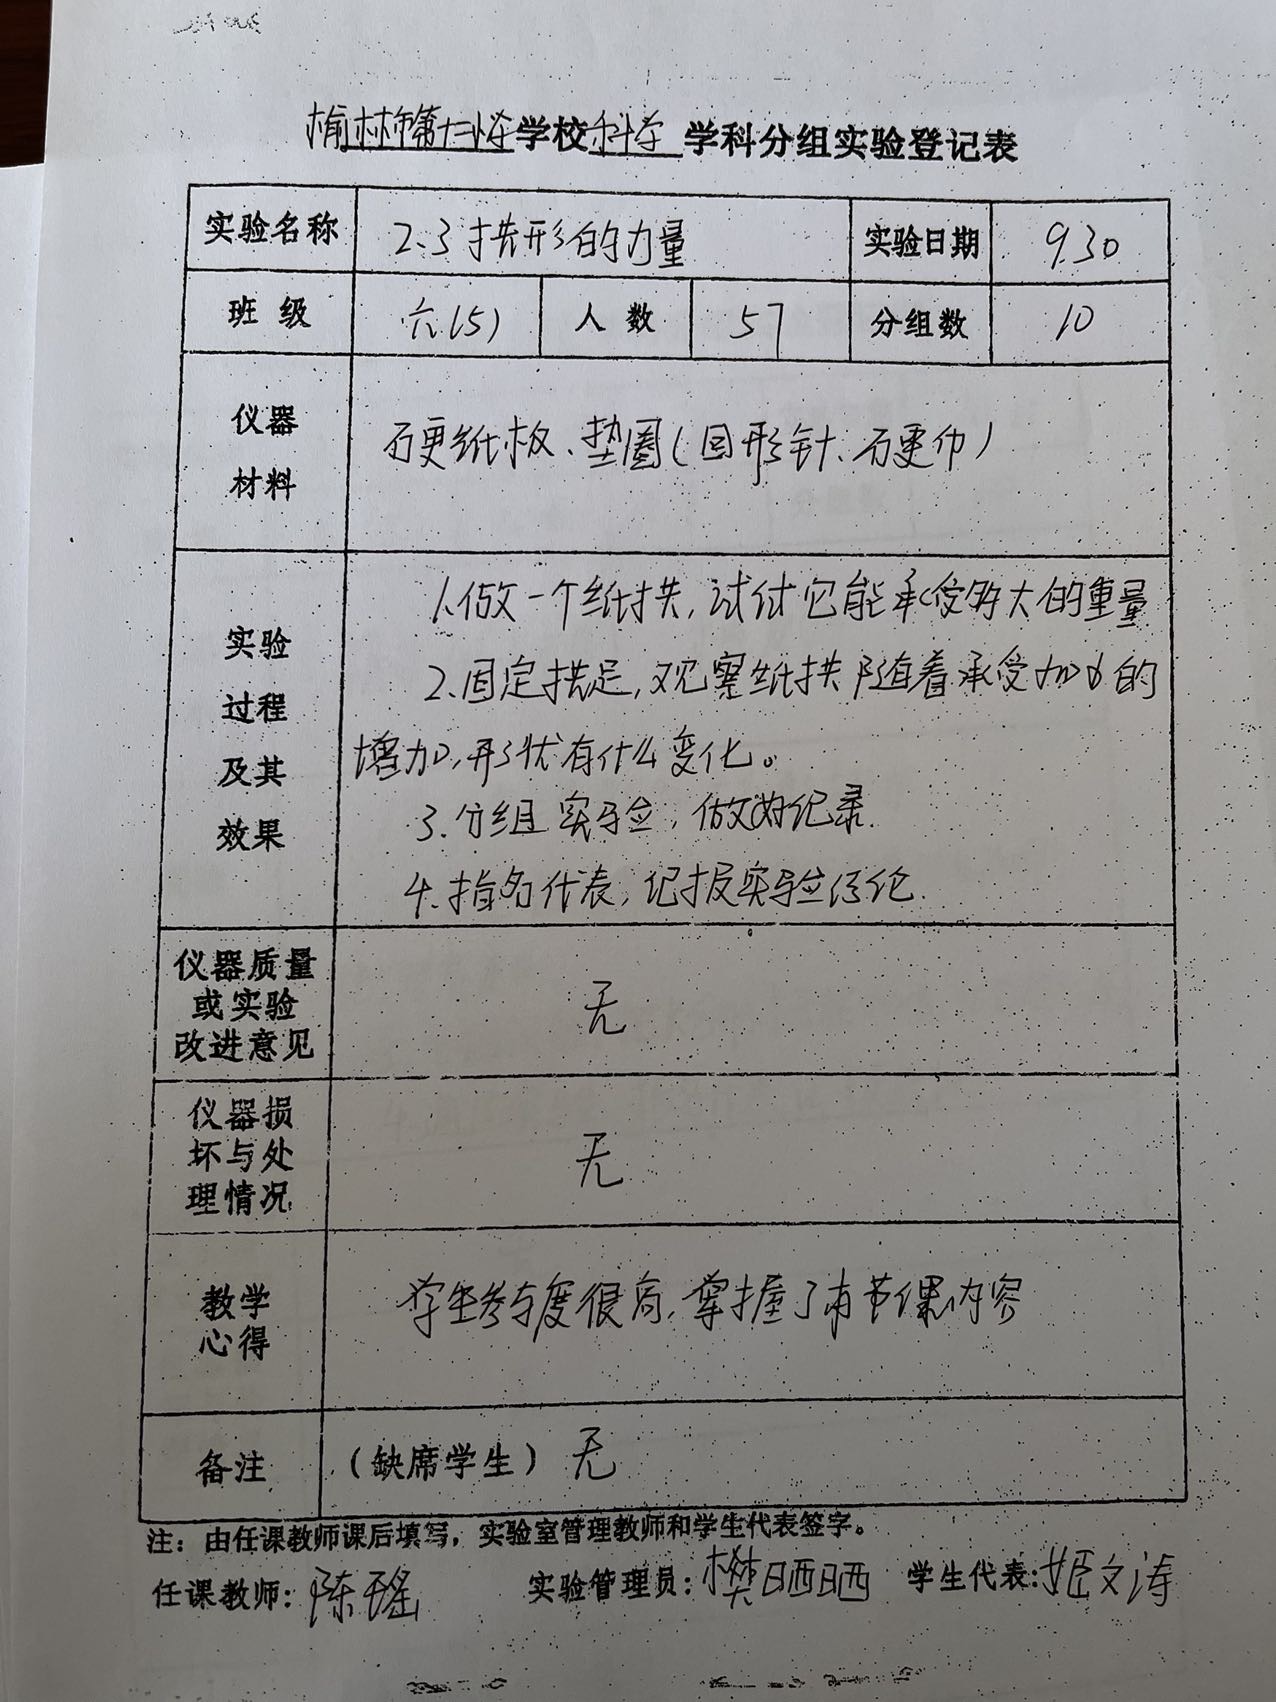 榆林市第十二小学学校科学学科分组实验登记表
实验名称 2.3拱形的力量 实验日期 9.30
班级 六(5) 人数 57 分组数 10
仪器材料 硬纸板、垫圈(回形针、硬币)
实验过程及其效果
1.做一个纸拱,试试它能承受多大的重量
2.固定拱足,观察纸拱随着承受力的
增加,形状有什么变化。
3.分组实验,做好纪录.
4.指名代表,记报实验结论.
仪器质量或实验改进意见 无
仪器损坏与处理情况 无
教学心得 学生参与度很高,掌握了本节课内容
备注 (缺席学生) 无
注:由任课教师课后填写,实验室管理教师和学生代表签字。
任课教师:陈瑶 实验管理员:樊晒晒 学生代表:姬文涛